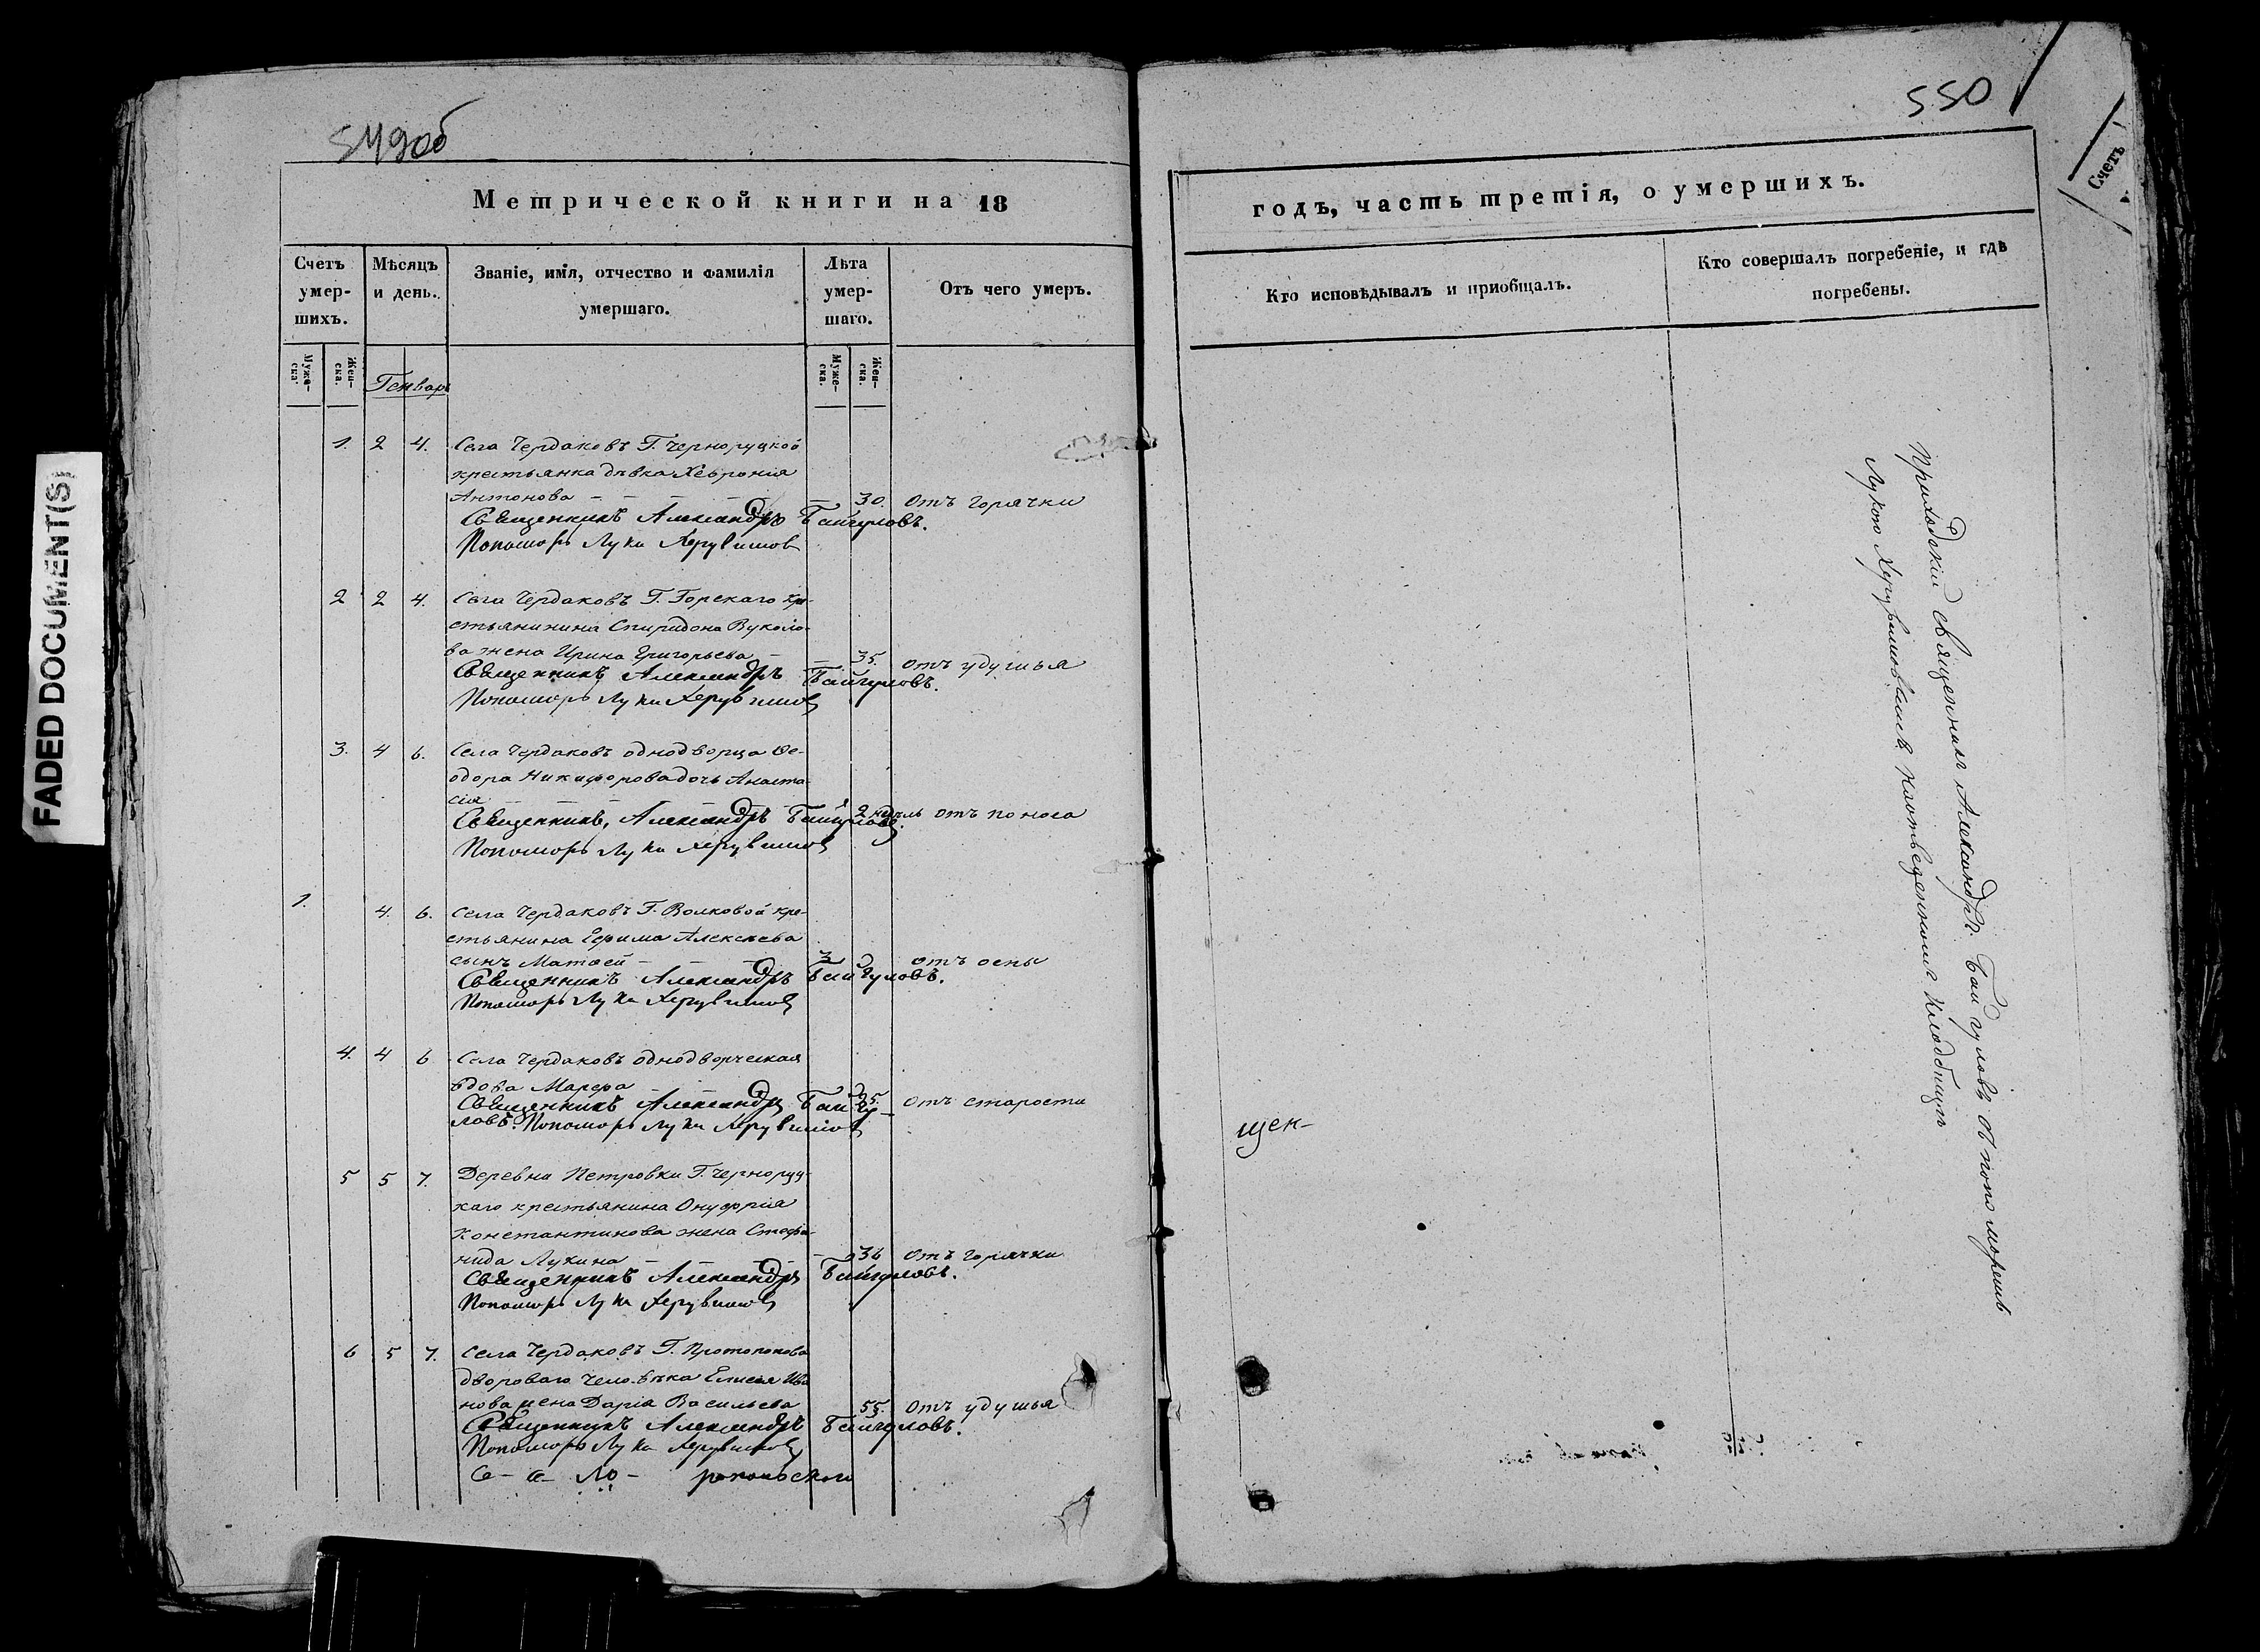 549об
Метрической книги на 18
Счетъ умер-шихъ.
Мѣсяцъ и день.
Званіе, имя, отчество и фамилія умершаго.
Лѣта умер-шаго.
Отъ чего умеръ.
Муже-ска.
Жен-ска.
Генварь
Муже-ска.
Жен-ска.
1. 2 4. Села Чердаковъ Г. Черноруцкой
крестьянка дѣвка Хеврония
Антонова – – – – – – 30. отъ горячки
Священникъ Александръ Байгуловъ.
Пономарь Лука Херувимовъ
2 2 4. Села Чердаковъ Г. Горскаго кре-
стьянинина Спиридона Вуколо-
ва жена Ирина Григорьева – – 35. отъ удушья
Священникъ Александръ Байгуловъ.
Пономарь Лука Херувимовъ
3. 4 6. Села Чердаковъ однодворца Ѳе-
одора Никифорова дочь Анаста-
сія – – – – – 2 недѣль отъ поноса
Священникъ, Александръ Байгуловъ.
Пономарь Лука Херувимовъ
1. 4. 6. Села Чердаковъ Г. Волковой кре-
стьянина Ефима Алексѣева
сынъ Матвей – – – 3 отъ оспы
Священникъ Александръ Байгуловъ.
Пономарь Лука Херувимовъ
4. 4 6 Села Чердаковъ однодворческая
вдова Марфа – – – 95. отъ старости
Священникъ Александръ Байгу-
ловъ. Пономарь Лука Херувимовъ
5 5 7. Деревни Петровки Г. Черноруц-
каго крестьянина Онуфрія
Константинова жена Стефа-
нида Лукина – – – 36 отъ горячки
Священникъ Александръ Байгуловъ.
Пономарь Лука Херувимовъ
6 5 7. Села Чердаковъ Г. Протопопова
двороваго человѣка Елисея Ива
нова жена Дарія Васильева 55. отъ удушья
Священникъ Александръ Байгуловъ.
Пономарь Лука Херувимовъ
550
годъ, часть третія, о умершихъ.
Кто исповѣдывалъ и приобщалъ.
Кто совершалъ погребеніе, и гдѣ погребены.
Приходскій священникъ Александръ Байгуловъ съ пономаремъ
Лукою Херувимовымъ на отведенномъ кладбищѣ
щен-
Счетъ
FADED DOCUMENT(S)